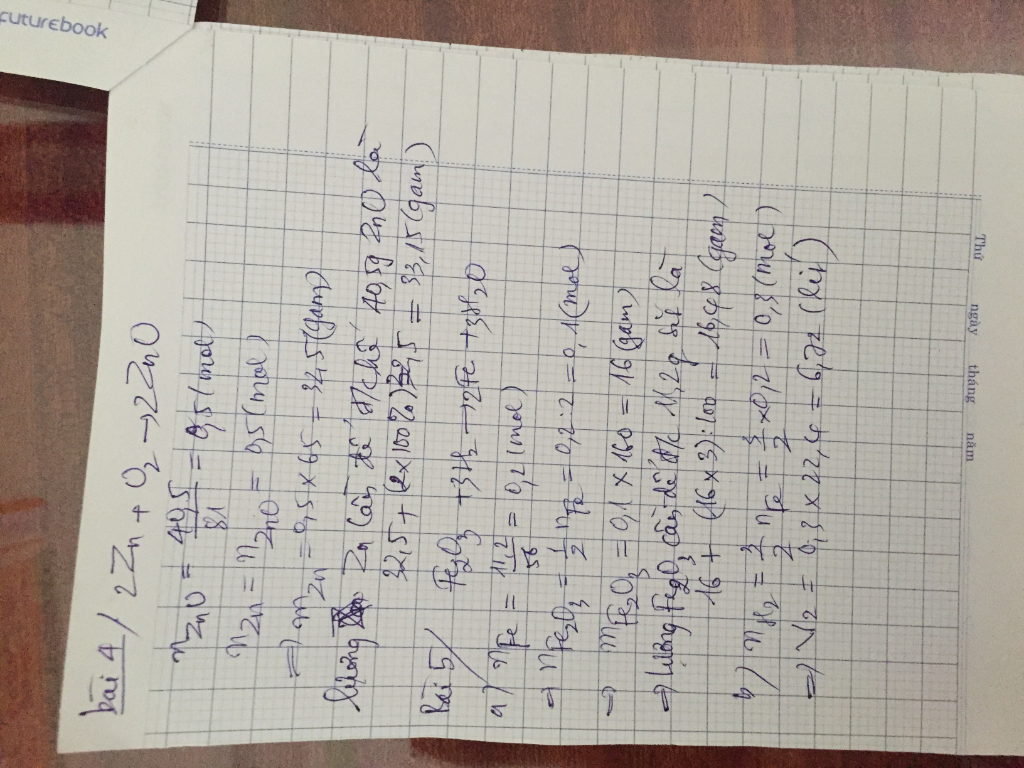 FUTUREBOOK
bài 4/ 2Zn + O2 → 2ZnO
nZnO = 40,5/81 = 0,5 (mol)
nZn = nZnO = 0,5 (mol)
=> mZn = 0,5 x 65 = 32,5 (gam)
lượng Zn cần để đ/chế 40,5g ZnO là
32,5 + (2x100%)32,5 = 33,15 (gam)
Bài 5/ Fe2O3 + 3H2 → 2Fe + 3H2O
a) nFe = 11,2/56 = 0,2 (mol)
=> nFe2O3 = 1/2 nFe = 0,2:2 = 0,1 (mol)
=> mFe2O3 = 0,1 x 160 = 16 (gam)
=> lượng Fe2O3 cần để đ/c 11,2g sắt là
16 + (16 x 3):100 = 16,48 (gam)
b) nH2 = 3/2 nFe = 3/2 x 0,2 = 0,3 (mol)
=> V2 = 0,3 x 22,4 = 6,72 (lít)
Thứ ngày tháng năm